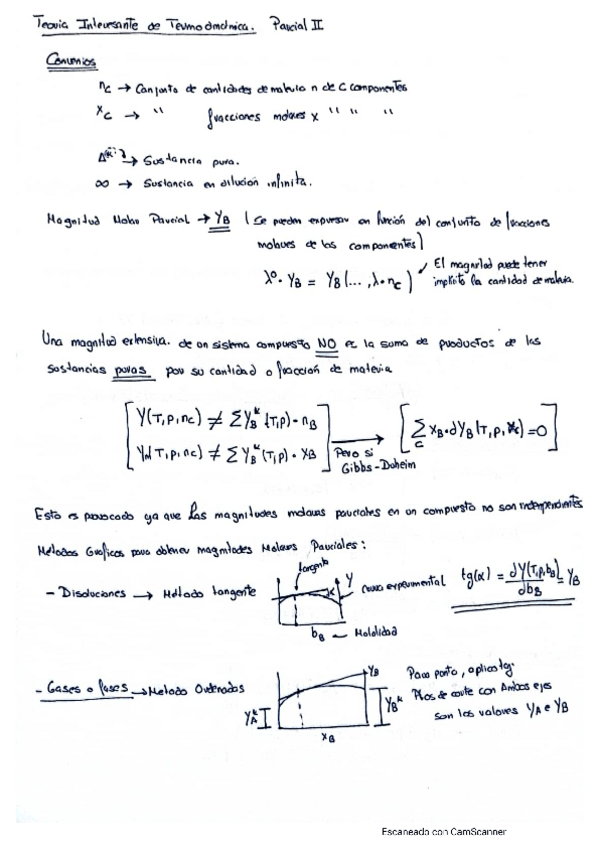 Teoría Interesante de Termodinámica. Parcial II
Convenios
n_c → Conjunto de cantidades de materia n de C componentes
x_c → " fracciones molares x " " "
→ Sustancia pura.
∞ → Sustancia en dilución infinita.
Magnitud Molar Parcial → Y_B (Se pueden expresar en función del conjunto de fracciones
molares de los componentes)
λ⁰· Y_B = Y_B(..., λ·n_c)
El magnitud puede tener
implícito la cantidad de materia.
Una magnitud extensiva. de un sistema compuesto NO es la suma de productos de las
sustancias puras por su cantidad o fracción de materia
Y(T,p,n_c) ≠ ΣY_B^*(T,p)·n_B
Y_M(T,p,n_c) ≠ ΣY_B^*(T,p)·x_B
Pero si
Gibbs-Duheim
Σ_C x_B·dY_B(T,p,x_c)=0
Esto es provocado ya que las magnitudes molares parciales en un compuesto no son independientes
Métodos Gráficos para obtener magnitudes Molares Parciales:
- Disoluciones → Método tangente
tangente
Y
α
curva experimental
b_B — Molalidad
tg(α) = dY(T,p,b_B)/db_B = Y_B
- Gases o fases → Método Ordenadas
Y_A^*
Y_B
Y_B^*
x_B
Para punto, aplico tg.
Ptos de corte con Ambos ejes
son los valores Y_A e Y_B
Escaneado con CamScanner